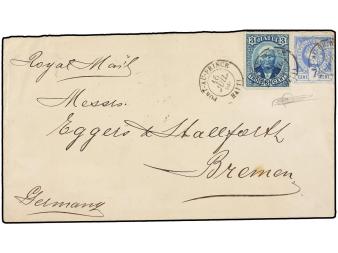 Royal Mail
Messrs.
Eggers & Stallforth
Bremen
Germany
PORT-AU-PRINCE
HAITI
3
7